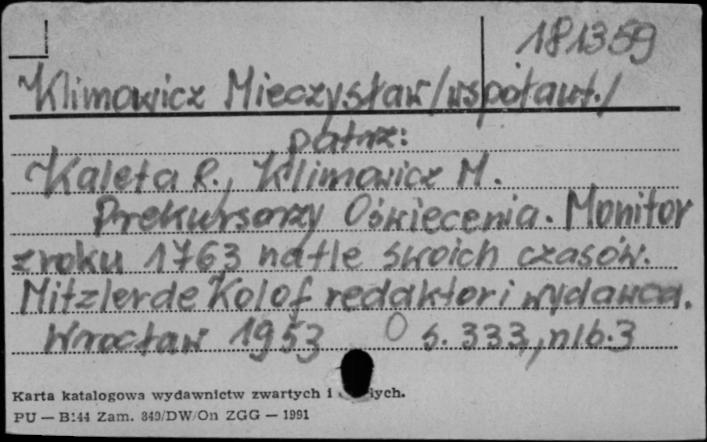 181359
Klimowicz Mieczysław /współaut./
patrz:
Kaleta R., Klimowicz M.
Prekursorzy Oświecenia. Monitor
z roku 1763 na tle swoich czasów.
Mitzler de Kolof redaktor i wydawca.
Wrocław 1953 s. 333, nlb. 3
Karta katalogowa wydawnictw zwartych i
PU — B144 Zam. 349/DW/On ZGG — 1991